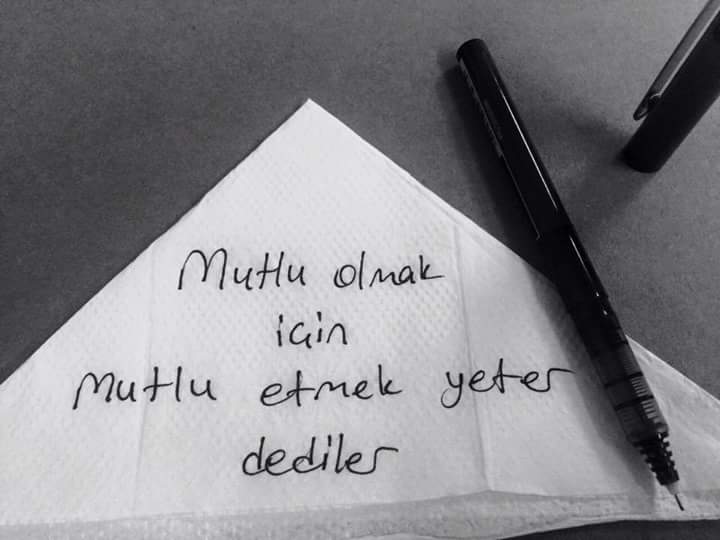 Mutlu olmak
için
Mutlu etmek yeter
dediler